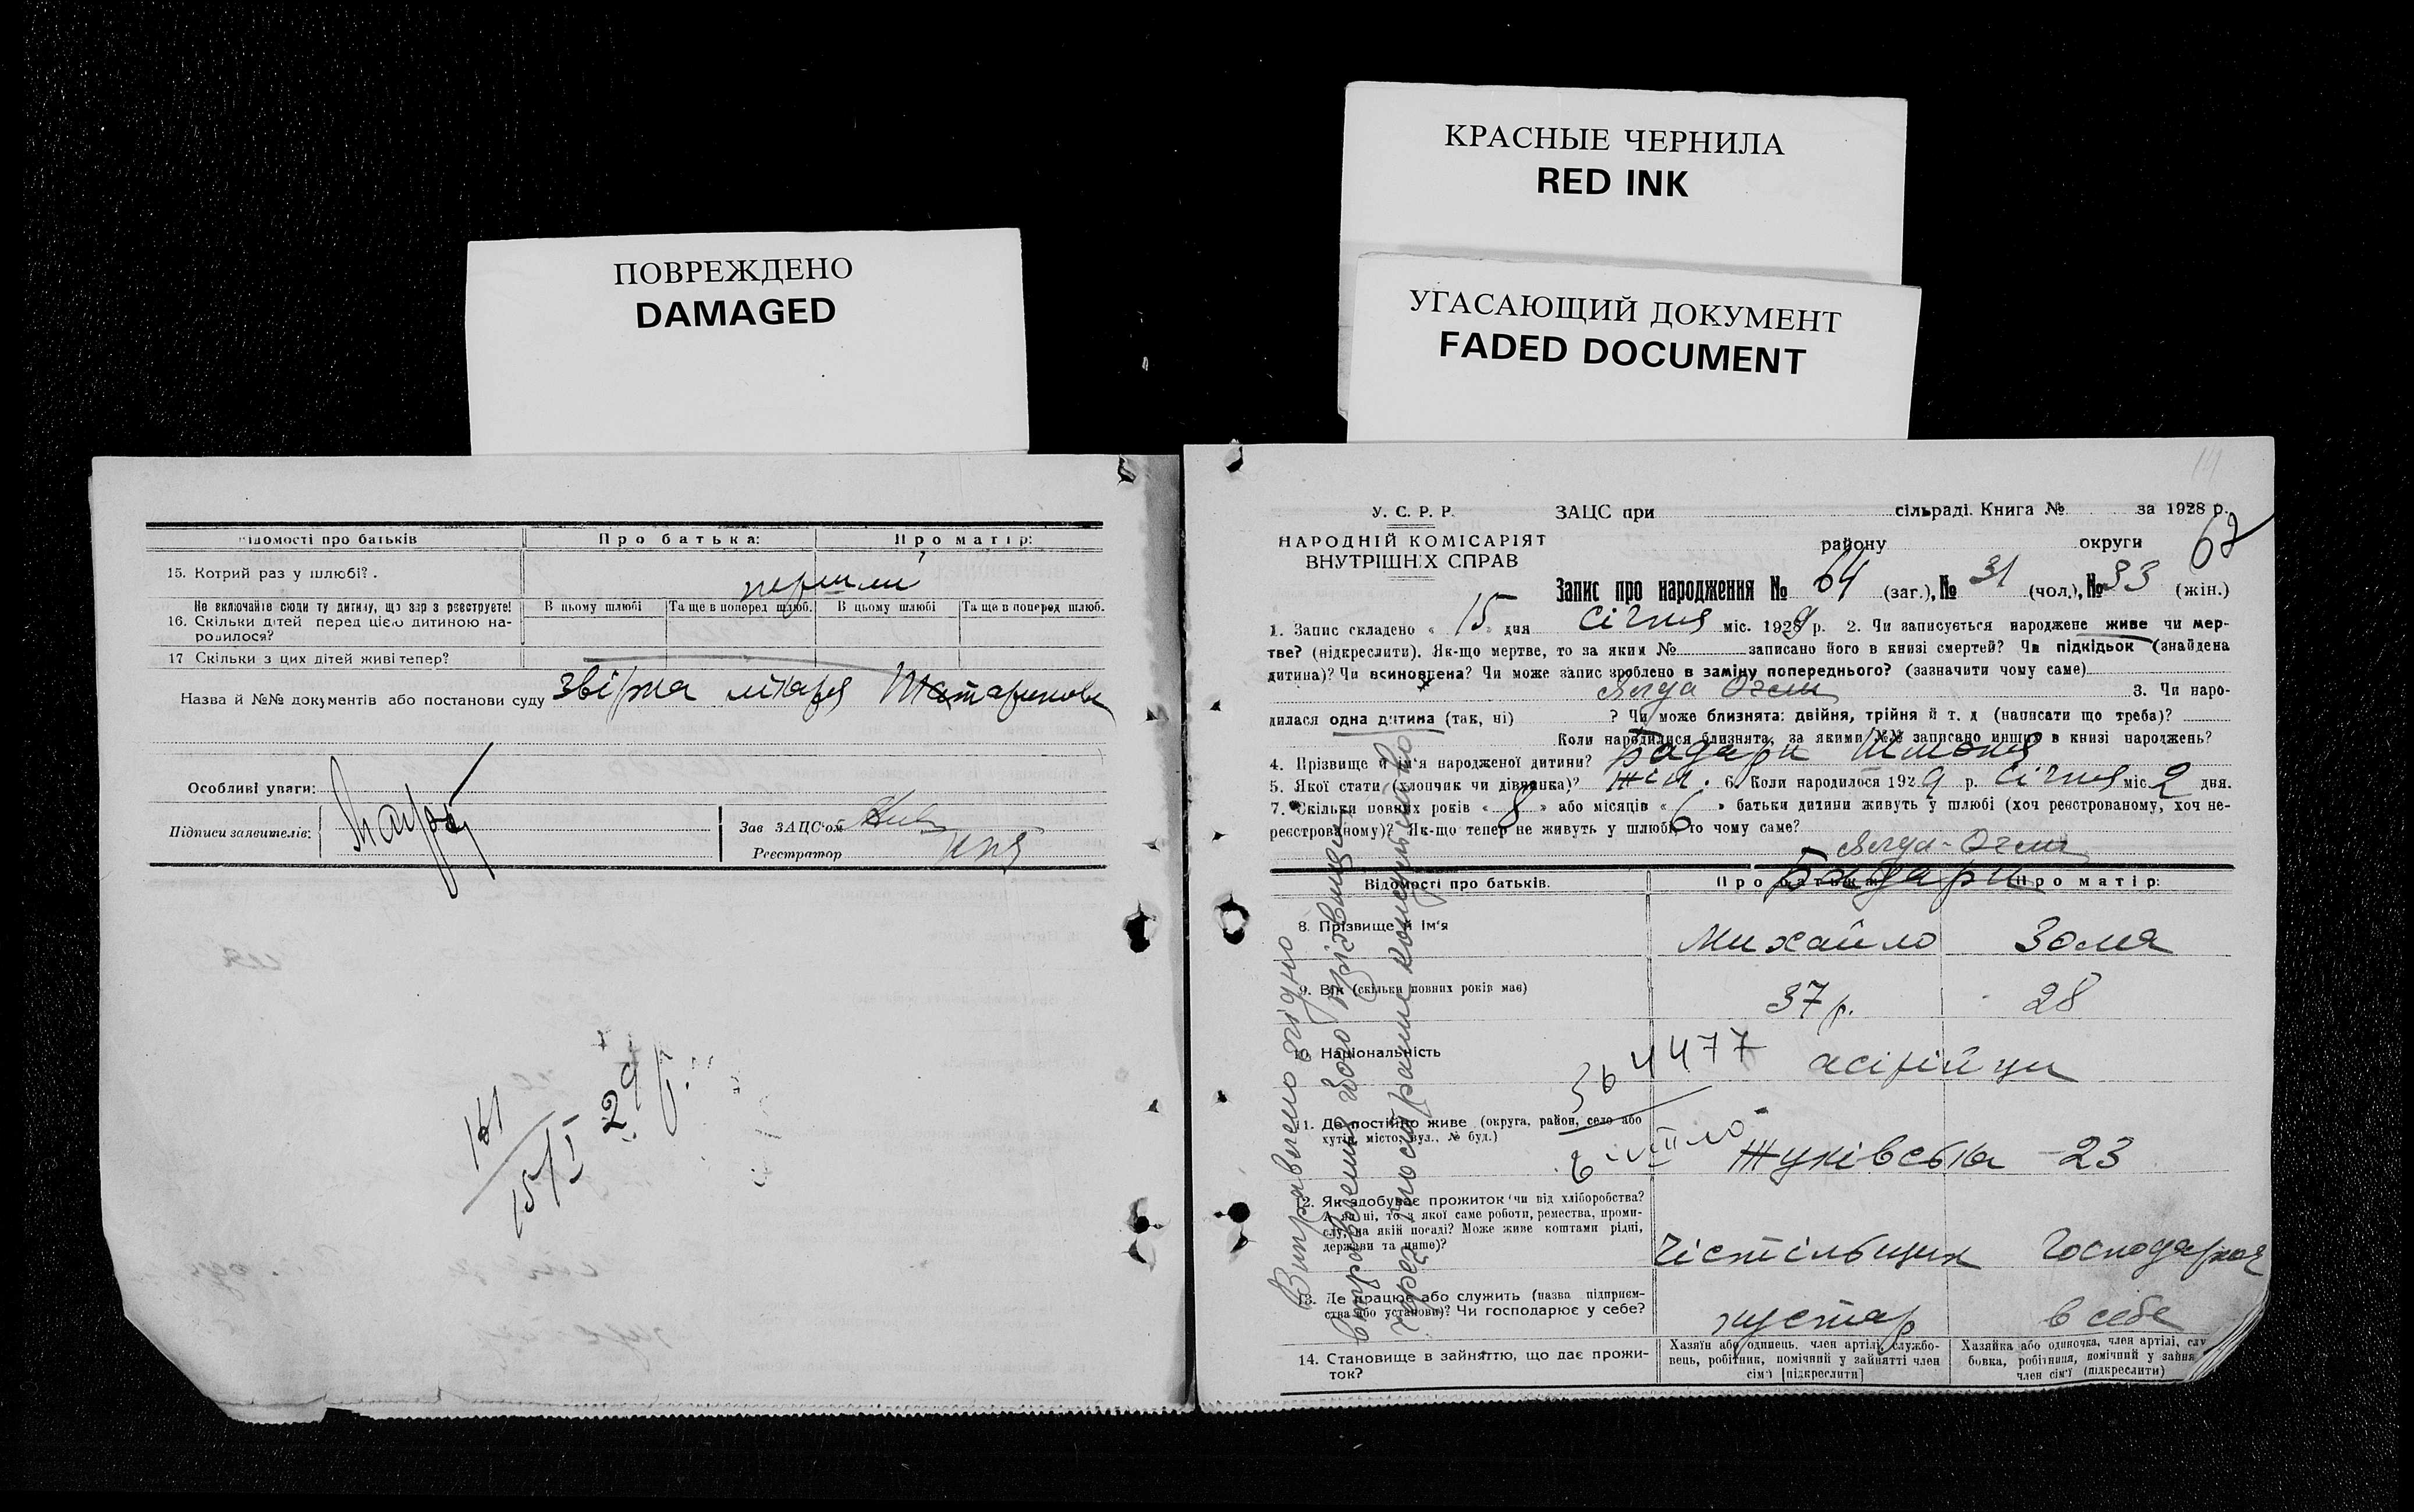 КРАСНЫЕ ЧЕРНИЛА
RED INK
ПОВРЕЖДЕНО
DAMAGED
УГАСАЮЩИЙ ДОКУМЕНТ
FADED DOCUMENT
відомості про батьків
Про батька:
Про матір:
15. Котрий раз у шлюбі?.
перший
Не включайте сюди ту дитину, що зар з реєструєте!
16. Скільки дітей перед цією дитиною на-
родилося?
В цьому шлюбі
Та ще в поперед шлюб.
В цьому шлюбі
Та ще в поперед шлюб.
17 Скільки з цих дітей живі тепер?
Назва й №№ документів або постанови суду
лікаря
Особливі уваги:
Підписи заявителів:
Зав ЗАЦС'ом
Реєстратор
161
15/I 29 р.
У. С. Р. Р.
НАРОДНІЙ КОМІСАРІЯТ
ВНУТРІШНІХ СПРАВ
ЗАЦС при сільраді. Книга № за 1928 р.
району округи
62
Запис про народження № 64 (заг.), № 31 (чол.), № 33 (жін.)
1. Запис складено « 15 » дня Січня міс. 1929 р. 2. Чи записується народжене живе чи мер-
тве? (підкреслити). Як-що мертве, то за яким № записано його в книзі смертей? Чи підкідьок (знайдена
дитина)? Чи всиновлена? Чи може запис зроблено в заміну попереднього? (зазначити чому саме)
3. Чи наро-
дилася одна дитина (так, ні) ? Чи може близнята: двійня, трійня й т. д (написати що треба)?
Коли народилися близнята, за якими №№ записано инших в книзі народжень?
4. Прізвище й ім'я народженої дитини? Бадари
5. Якої стати (хлопчик чи дівчинка)? Жін. 6. Коли народилося 1929 р. Січня міс 2 дня.
7. Скільки повних років « 8 » або місяців « 6 » батьки дитини живуть у шлюбі (хоч реєстрованому, хоч не-
реєстрованому)? Як-що тепер не живуть у шлюбі, то чому саме?
Бадари
Відомості про батьків.
Про батька:
Про матір:
8. Прізвище й ім'я
Михайло
Золя
9. Вік (скільки повних років має)
37 р.
28
10. Національність
асірійци
364477
11. Де постійно живе (округа, район, село або
хутір, місто, вул., № буд.)
Жуківська 23
12. Як здобуває прожиток чи від хліборобства?
А як ні, то з якої саме роботи, ремества, проми-
слу, на якій посаді? Може живе коштами рідні,
держави та инше)?
Чістільщик
Господарка
13. Де працює або служить (назва підприєм-
ства або установи)? Чи господарює у себе?
кустар
в себе
14. Становище в зайняттю, що дає прожи-
ток?
Хазяїн або одинець, член артілі, службо-
вець, робітник, помічний у зайнятті член
сім'ї [підкреслити]
Хазяйка або одиночка, член артілі, слу
бовка, робітниця, помічний у зайня
член сім'ї (підкреслити)
Виправлено згідно
виправлення його прізвища